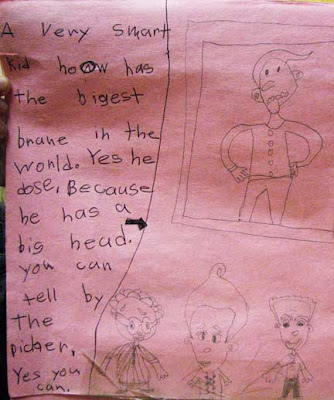 A very smart
kid hoow has
the bigest
brane in the
world. Yes he
dose. Because
he has a
big head.
you can
tell by
The
picker,
Yes you
can.